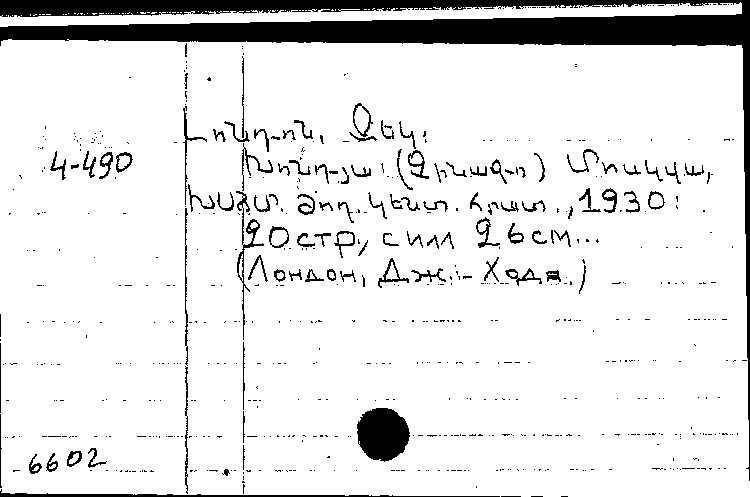 Լոնդոն, Ջեկ.
4-490
Խոնդյա: (Չինազո) Մոսկվա,
ԽՍՀՄ Ժող. կենտ. հրատ., 1930:
20стр, с илл 26см...
(Лондон, Дж.:- Ходя.)
6602